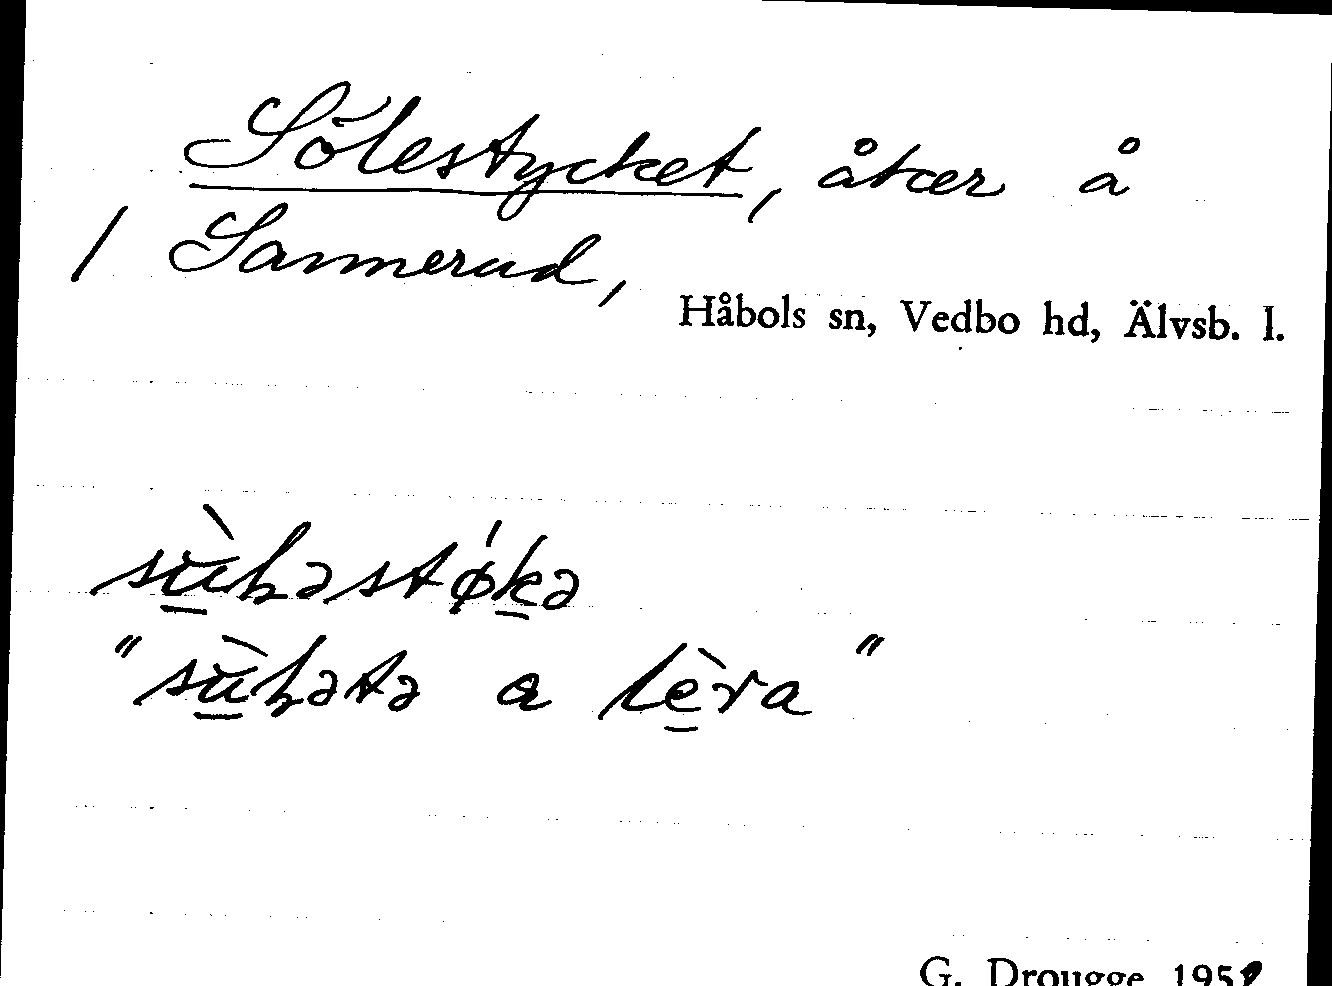 Sölestycket, åker å
/ Sannerud,
Håbols sn, Vedbo hd, Älvsb. l.
sùⱡəstǿkə
"sùⱡətə a lèra"
G. Drougge 195